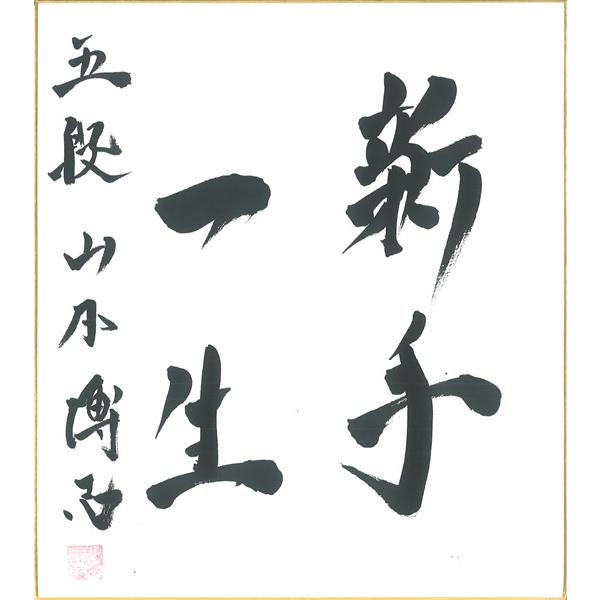 新手
一生
五段 山本博志